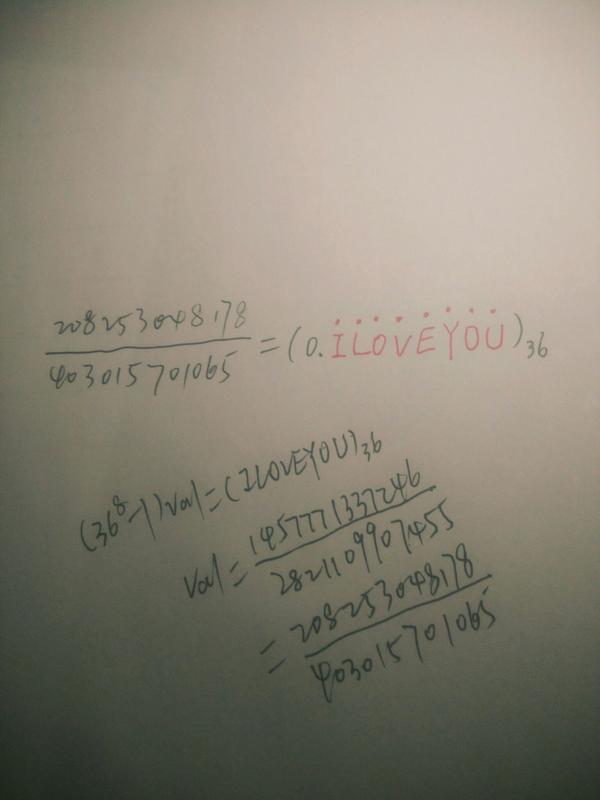 208253048178/403015701065 = (0.İL̇ȮV̇ĖẎȮU̇)₃₆
(36⁸-1)val = (ILOVEYOU)₃₆
val = 1457771337246/2821109907455
= 208253048178/403015701065